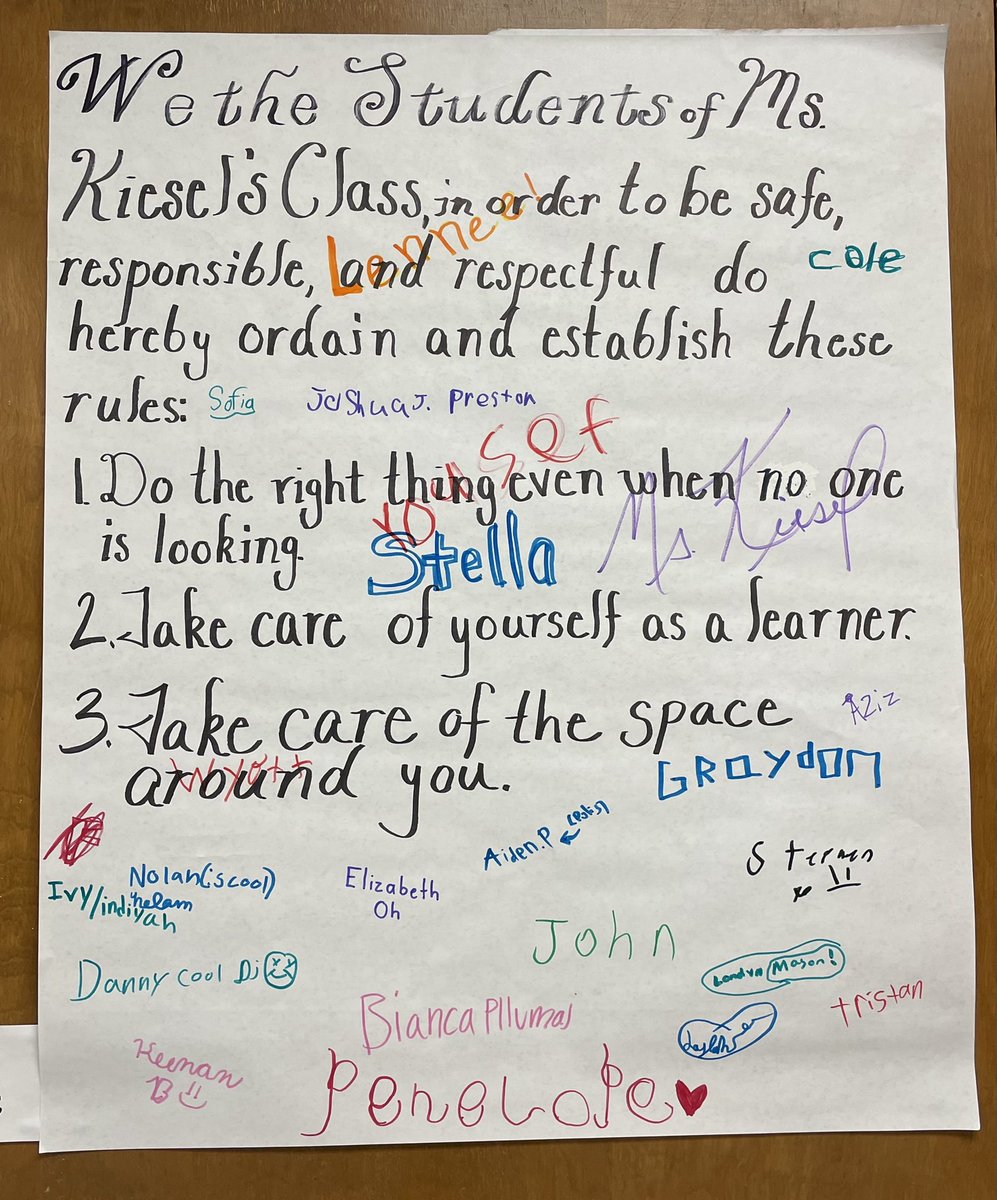 We the Students of Ms.
Kiesel's Class, in order to be safe,
Lennee!
responsible, and respectful do
cole
hereby ordain and establish these
rules:
Sofia
Joshua J. Preston
Yousef
1. Do the right thing even when no one
is looking.
Stella
Ms. Kiesel
2. Take care of yourself as a learner.
3. Take care of the space
Aziz
around you.
Wyatt
GRaydon
Aiden.P
Nolan(is cool)
Ivy/indiyah
Elizabeth
Oh
John
Danny cool Dj
Landyn Mason!
tristan
Bianca Pllumaj
Keenan
B
Penelope